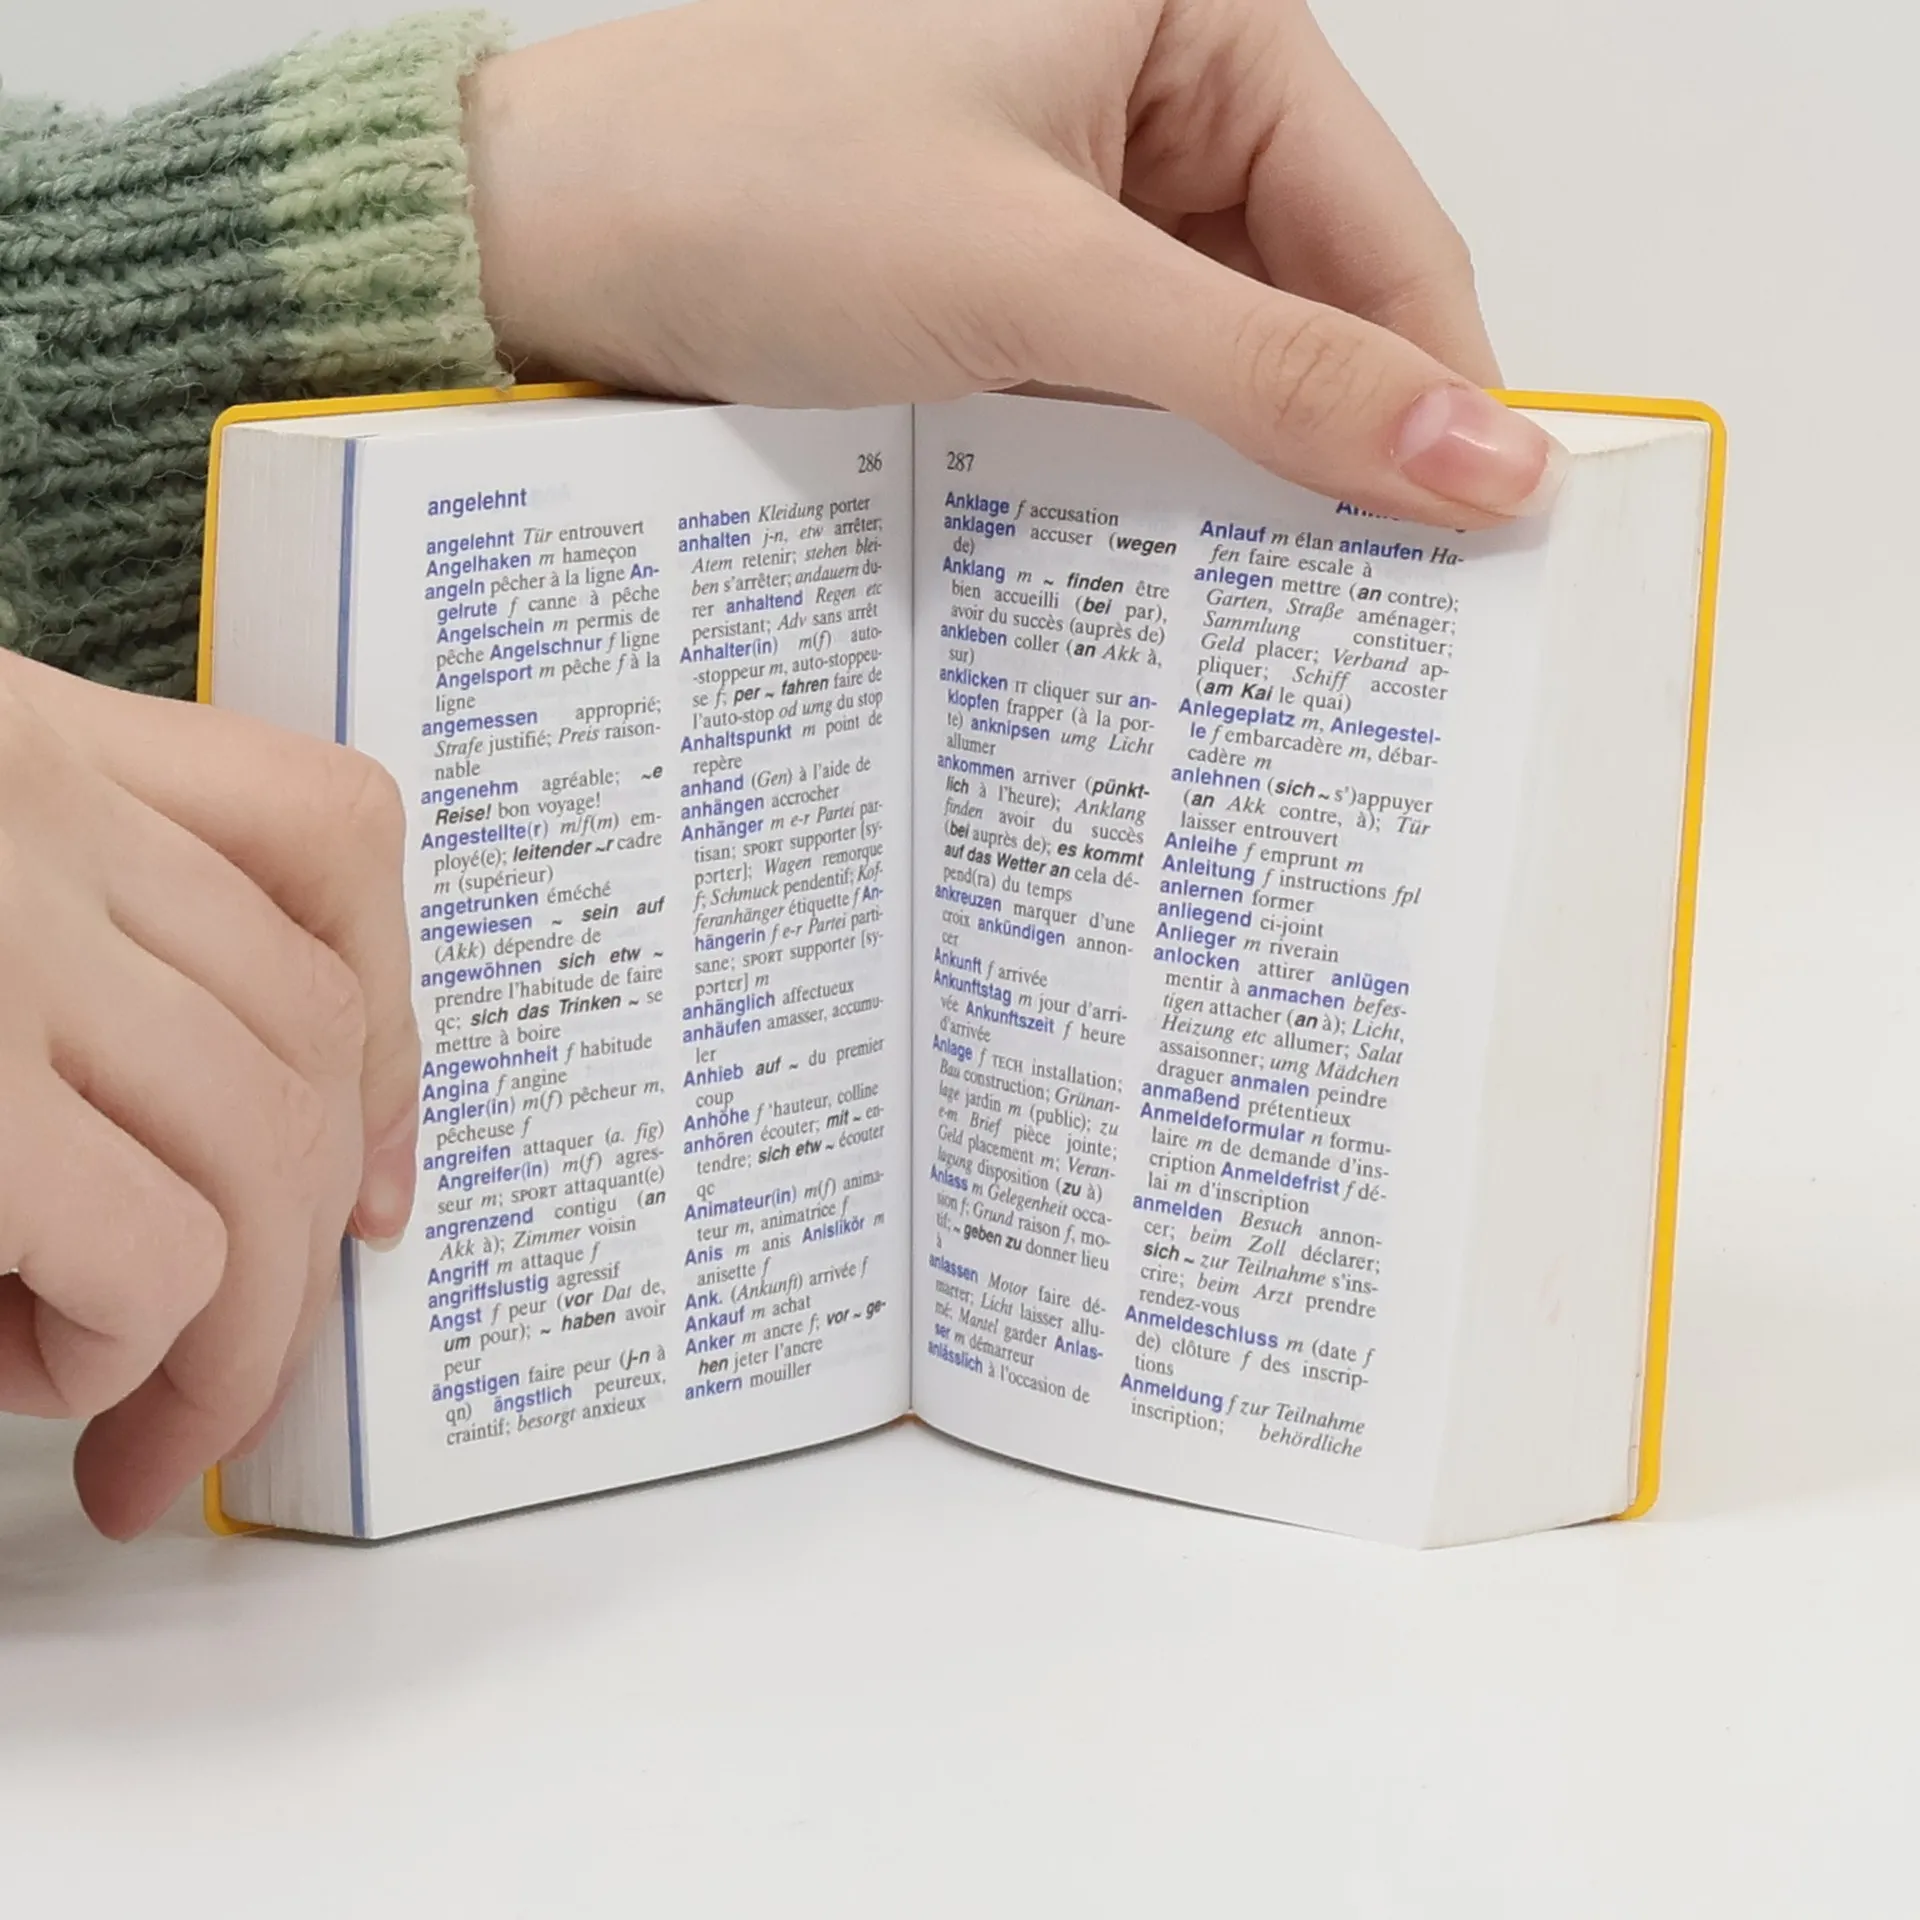 286
angelehnt
angelehnt Tür entrouvert
Angelhaken m hameçon
angeln pêcher à la ligne An-
gelrute f canne à pêche
Angelschein m permis de
pêche Angelschnur f ligne
Angelsport m pêche f à la
ligne
angemessen approprié;
Strafe justifié; Preis raison-
nable
angenehm agréable; ~e
Reise! bon voyage!
Angestellte(r) m/f(m) em-
ployé(e); leitender ~r cadre
m (supérieur)
angetrunken éméché
angewiesen ~ sein auf
(Akk) dépendre de
angewöhnen sich etw ~
prendre l'habitude de faire
qc; sich das Trinken ~ se
mettre à boire
Angewohnheit f habitude
Angina f angine
Angler(in) m(f) pêcheur m,
pêcheuse f
angreifen attaquer (a. fig)
Angreifer(in) m(f) agres-
seur m; SPORT attaquant(e)
angrenzend contigu (an
Akk à); Zimmer voisin
Angriff m attaque f
angriffslustig agressif
Angst f peur (vor Dat de,
um pour); ~ haben avoir
peur
ängstigen faire peur (j-n à
qn) ängstlich peureux,
craintif; besorgt anxieux
anhaben Kleidung porter
anhalten j-n, etw arrêter;
Atem retenir; stehen blei-
ben s'arrêter; andauern du-
rer anhaltend Regen etc
persistant; Adv sans arrêt
Anhalter(in) m(f) auto-
-stoppeur m, auto-stoppeu-
se f; per ~ fahren faire de
l'auto-stop od umg du stop
Anhaltspunkt m point de
repère
anhand (Gen) à l'aide de
anhängen accrocher
Anhänger m e-r Partei par-
tisan; SPORT supporter [sy-
pɔrtɛr]; Wagen remorque
f; Schmuck pendentif; Kof-
feranhänger étiquette f An-
hängerin f e-r Partei parti-
sane; SPORT supporter [sy-
pɔrtɛr] m
anhänglich affectueux
anhäufen amasser, accumu-
ler
Anhieb auf ~ du premier
coup
Anhöhe f 'hauteur, colline
anhören écouter; mit ~ en-
tendre; sich etw ~ écouter
qc
Animateur(in) m(f) anima-
teur m, animatrice f
Anis m anis Anislikör m
anisette f
Ank. (Ankunft) arrivée f
Ankauf m achat
Anker m ancre f; vor ~ ge-
hen jeter l'ancre
ankern mouiller
287
Anklage f accusation
anklagen accuser (wegen
de)
Anklang m ~ finden être
bien accueilli (bei par),
avoir du succès (auprès de)
ankleben coller (an Akk à,
sur)
anklicken IT cliquer sur an-
klopfen frapper (à la por-
te) anknipsen umg Licht
allumer
ankommen arriver (pünkt-
lich à l'heure); Anklang
finden avoir du succès
(bei auprès de); es kommt
auf das Wetter an cela dé-
pend(ra) du temps
ankreuzen marquer d'une
croix ankündigen annon-
cer
Ankunft f arrivée
Ankunftstag m jour d'arri-
vée Ankunftszeit f heure
d'arrivée
Anlage f TECH installation;
Bau construction; Grünan-
lage jardin m (public); zu
e-m Brief pièce jointe;
Geld placement m; Veran-
lagung disposition (zu à)
Anlass m Gelegenheit occa-
sion f; Grund raison f, mo-
tif; ~ geben zu donner lieu
à
anlassen Motor faire dé-
marrer; Licht laisser allu-
mé; Mantel garder Anlas-
ser m démarreur
anlässlich à l'occasion de
Anlauf m élan anlaufen Ha-
fen faire escale à
anlegen mettre (an contre);
Garten, Straße aménager;
Sammlung constituer;
Geld placer; Verband ap-
pliquer; Schiff accoster
(am Kai le quai)
Anlegeplatz m, Anlegestel-
le f embarcadère m, débar-
cadère m
anlehnen (sich ~ s')appuyer
(an Akk contre, à); Tür
laisser entrouvert
Anleihe f emprunt m
Anleitung f instructions fpl
anlernen former
anliegend ci-joint
Anlieger m riverain
anlocken attirer anlügen
mentir à anmachen befes-
tigen attacher (an à); Licht,
Heizung etc allumer; Salat
assaisonner; umg Mädchen
draguer anmalen peindre
anmaßend prétentieux
Anmeldeformular n formu-
laire m de demande d'ins-
cription Anmeldefrist f dé-
lai m d'inscription
anmelden Besuch annon-
cer; beim Zoll déclarer;
sich ~ zur Teilnahme s'ins-
crire; beim Arzt prendre
rendez-vous
Anmeldeschluss m (date f
de) clôture f des inscrip-
tions
Anmeldung f zur Teilnahme
inscription; behördliche